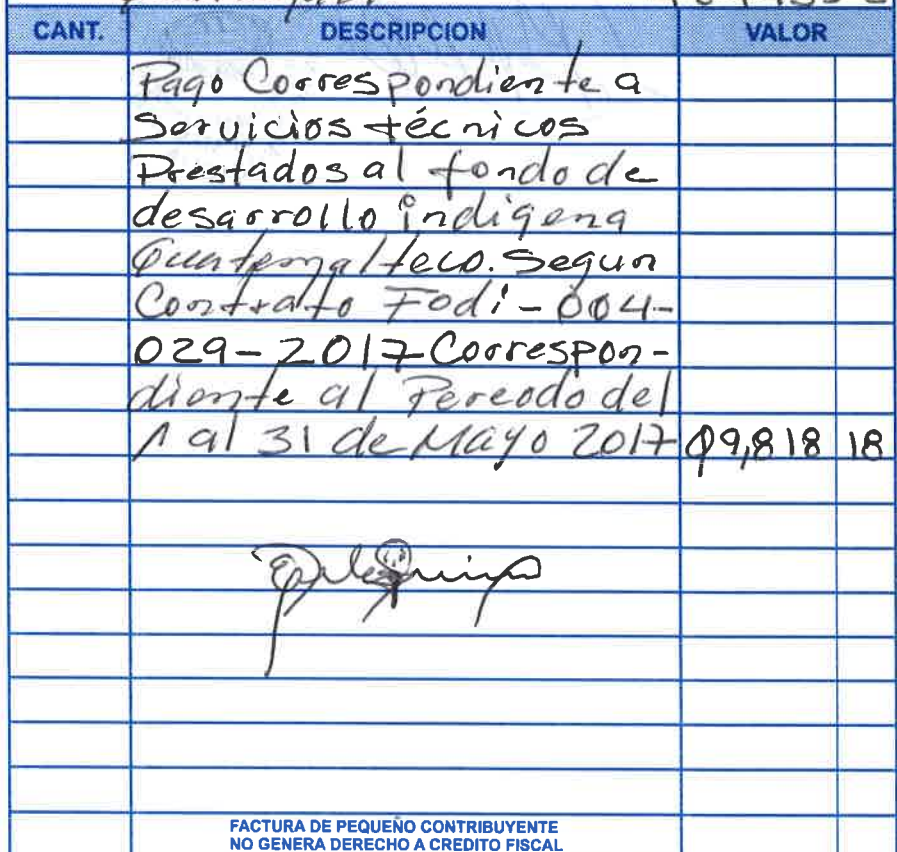 CANT. DESCRIPCION VALOR
Pago Correspondiente a
Servicios técnicos
Prestados al fondo de
desarrollo indigena
Guatemalteco. Segun
Contrato Fodi-004-
029-2017 Correspon-
diente al Pereodo del
1 al 31 de Mayo 2017 Q9,818 18
FACTURA DE PEQUEÑO CONTRIBUYENTE
NO GENERA DERECHO A CREDITO FISCAL